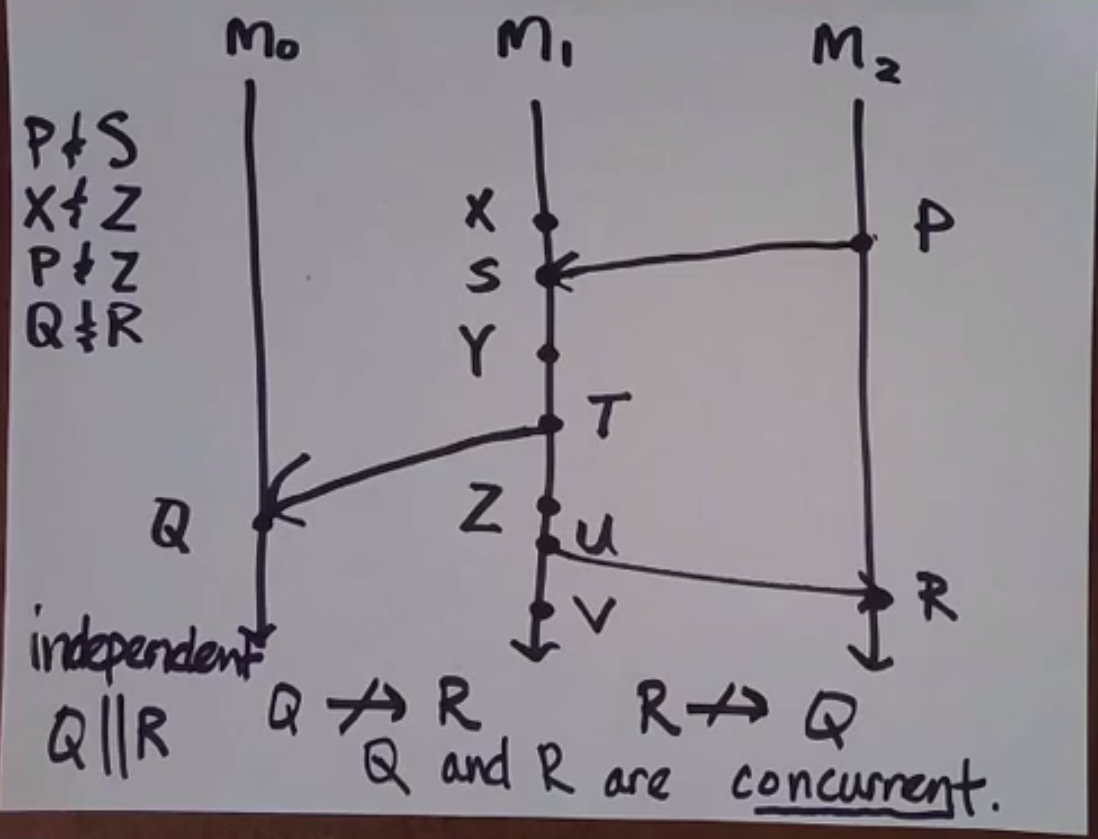 M₀ M₁ M₂
P & S
X & Z
P & Z
Q & R
X
P
S
Y
T
Q
Z
U
R
V
independent
Q || R
Q ↛ R
R ↛ Q
Q and R are concurrent.